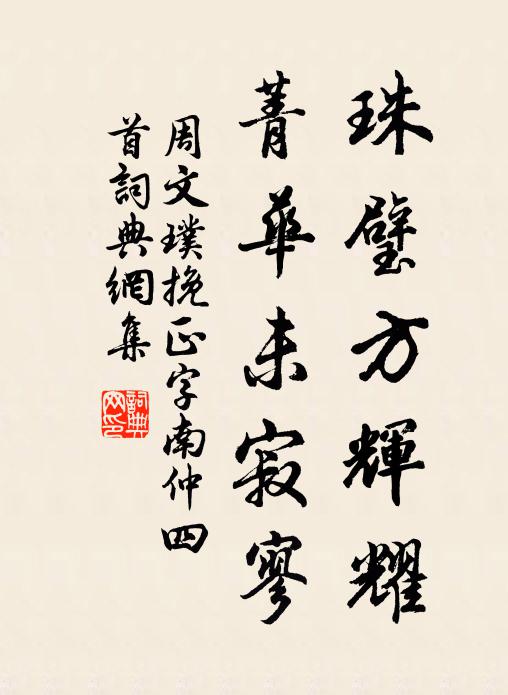 珠璧方輝耀
菁華未寂寥
周文璞挽正字南仲四
首詞典網集
詞典
網印